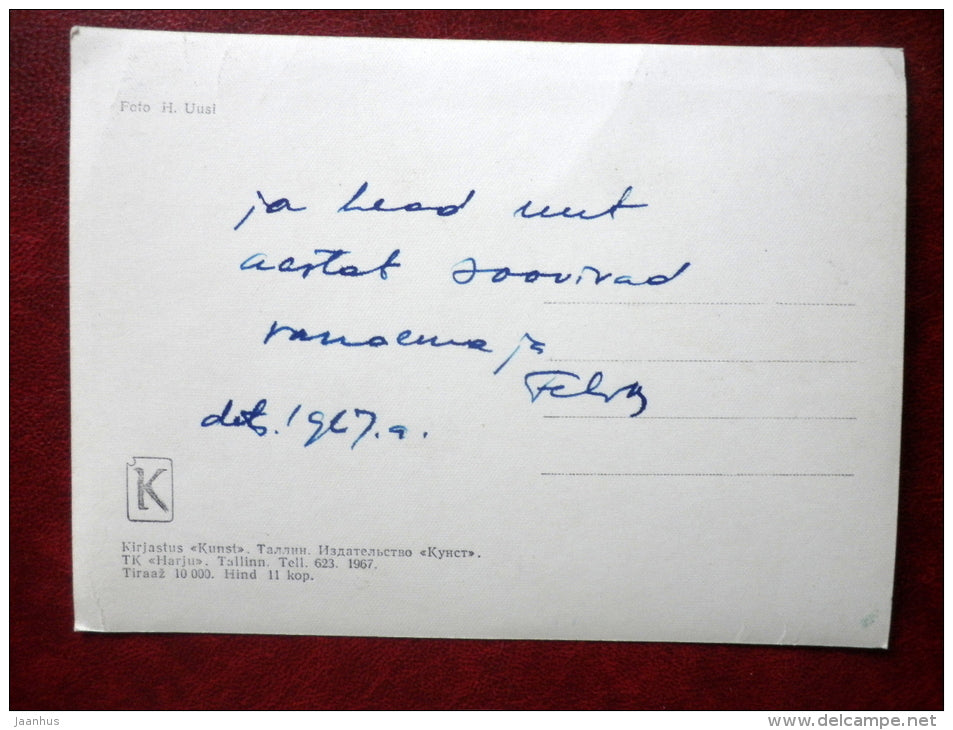 Foto H. Uusi
ja head uut
aastat soovivad
vanaema ja
dets. 1967. a.
K
Kirjastus «Kunst». Таллин. Издательство «Кунст».
TK «Harju». Tallinn. Tell. 623. 1967.
Tiraaž 10 000. Hind 11 kop.
jaanhus
www.delcampe.net